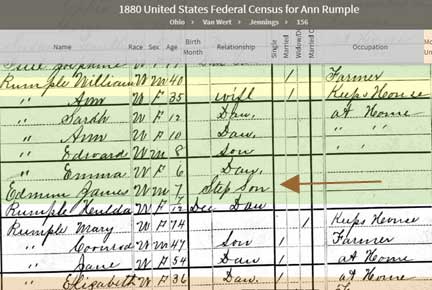 1880 United States Federal Census for Ann Rumple
Ohio Van Wert Jennings 156
Name Race Sex Age Birth Month Relationship Single Married Widow/Di Married C Occupation
Rumple William W M 40 1 Farmer
" Ann W F 35 wife 1 Keeps House
" Sarah W F 12 Dau. at Home
" Ann W F 10 Dau. " "
" Edward W M 8 Son
" Emma F 6 Dau.
Edmin James W M 7 Step Son
Rumple Hulda W F /12 Dec Dau
Rumple Mary W F 74 1 Keeps House
" Conrod W M 47 Son 1 Farmer
" Jane W F 54 Dau 1 at Home
" Elizabeth W F 36 Dau. 1 at Home